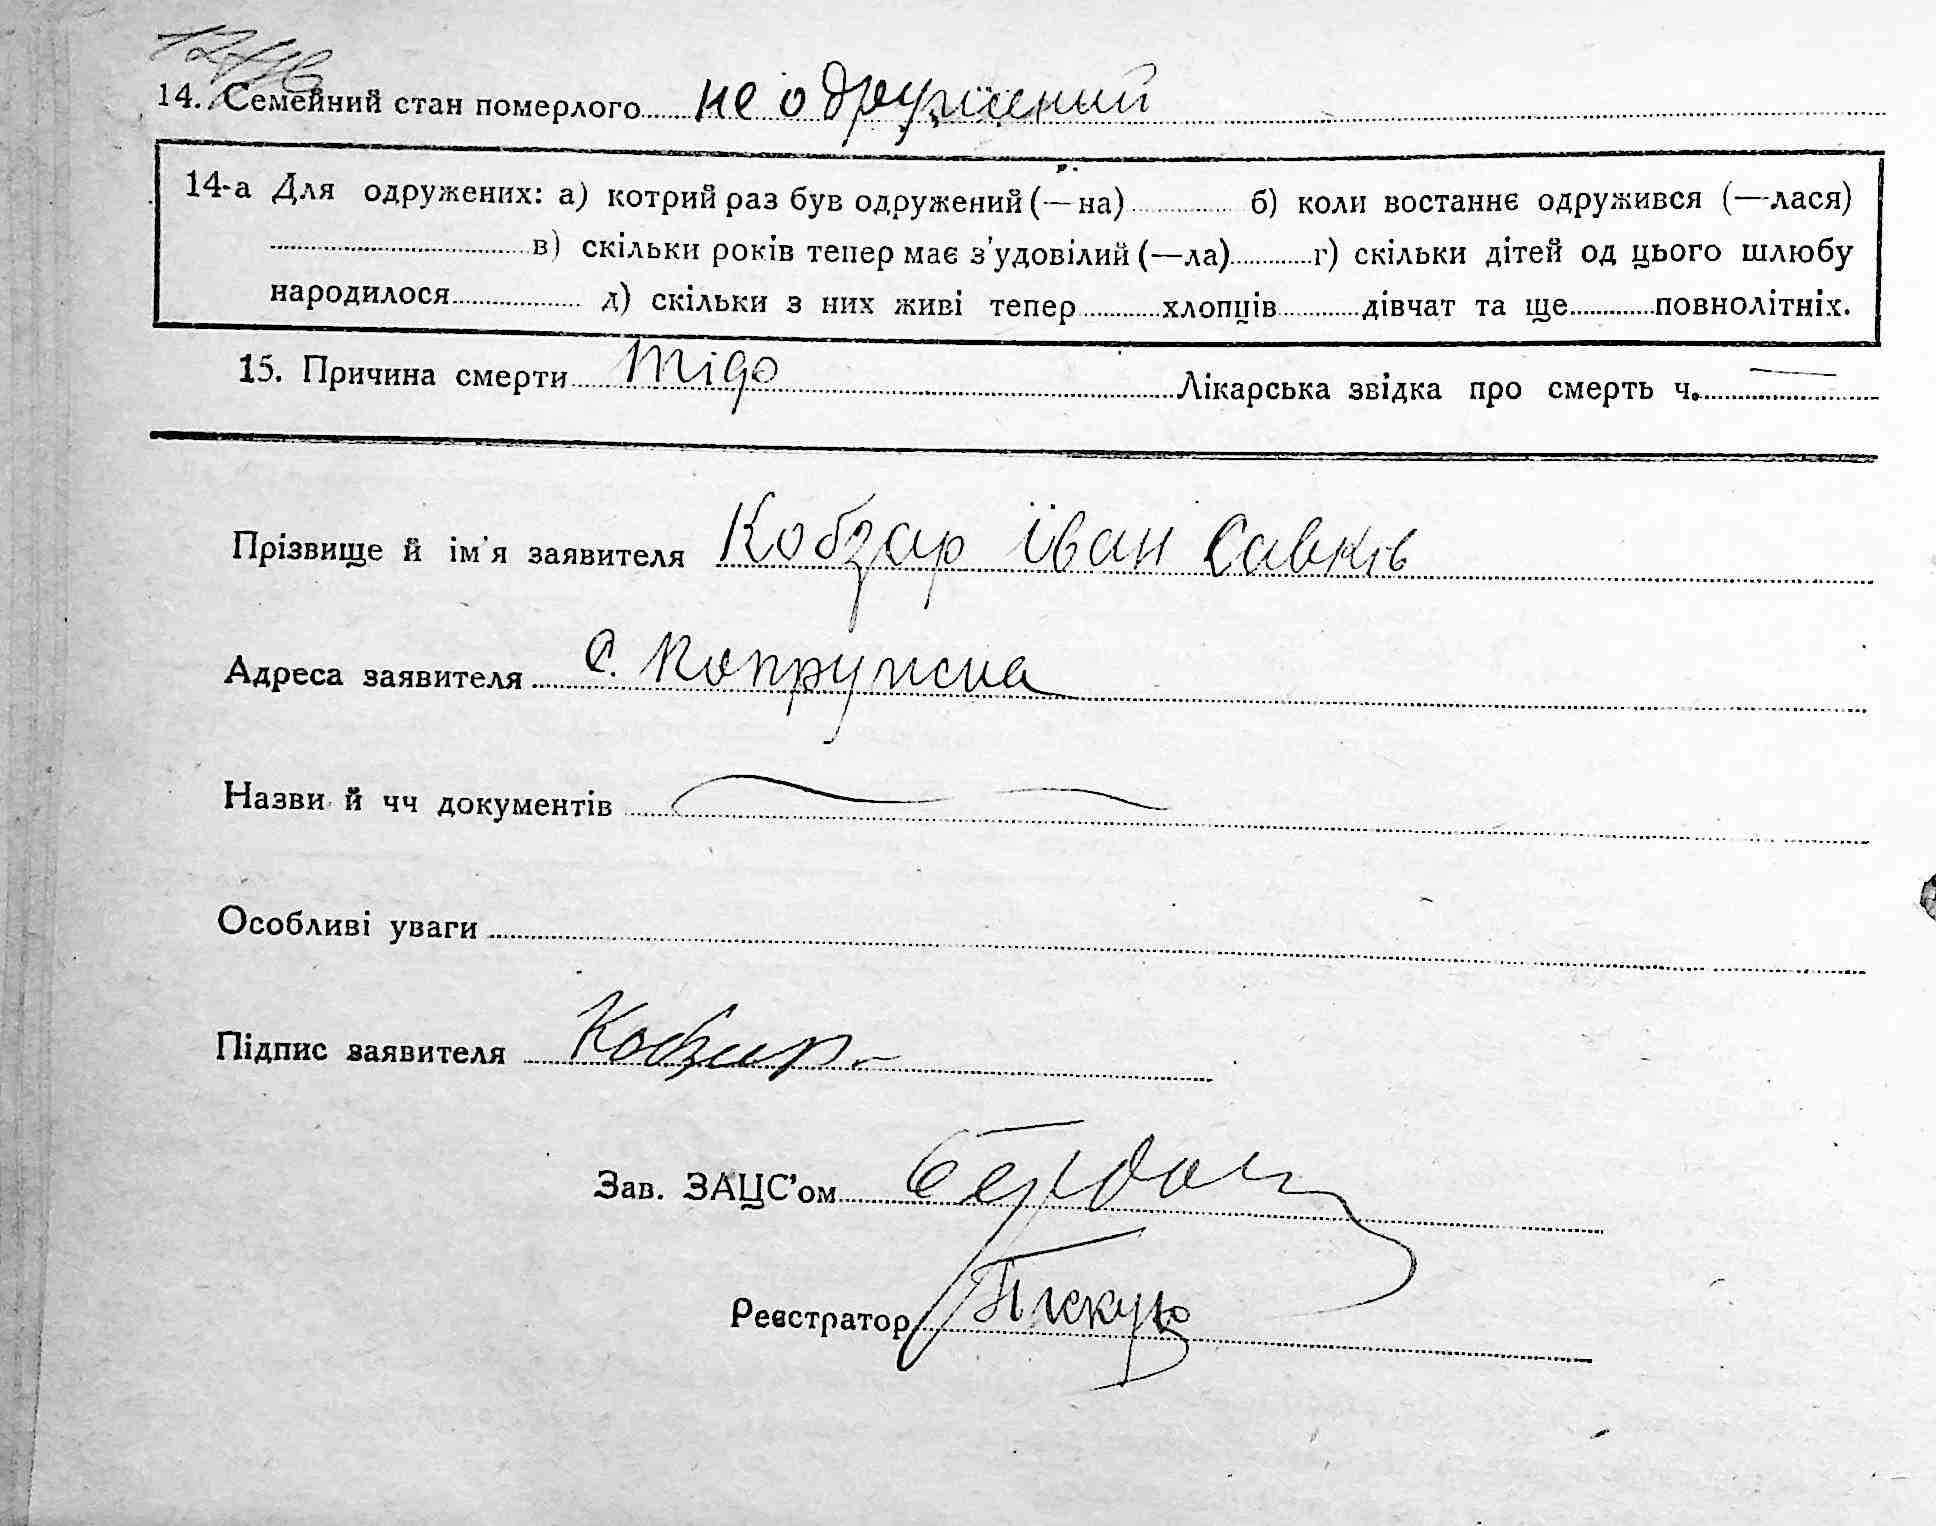 14. Семейний стан померлого не одружений
14-а Для одружених: а) котрий раз був одружений (—на) б) коли востаннє одружився (—лася)
в) скільки років тепер має з'удовілий (—ла) г) скільки дітей од цього шлюбу
народилося д) скільки з них живі тепер хлопців дівчат та ще повнолітніх.
15. Причина смерти Лікарська звідка про смерть ч.
Прізвище й ім'я заявителя Кобзар Іван Савків
Адреса заявителя с. Попружна
Назви й чч документів
Особливі уваги
Підпис заявителя Кобзар
Зав. ЗАЦС'ом
Реєстратор